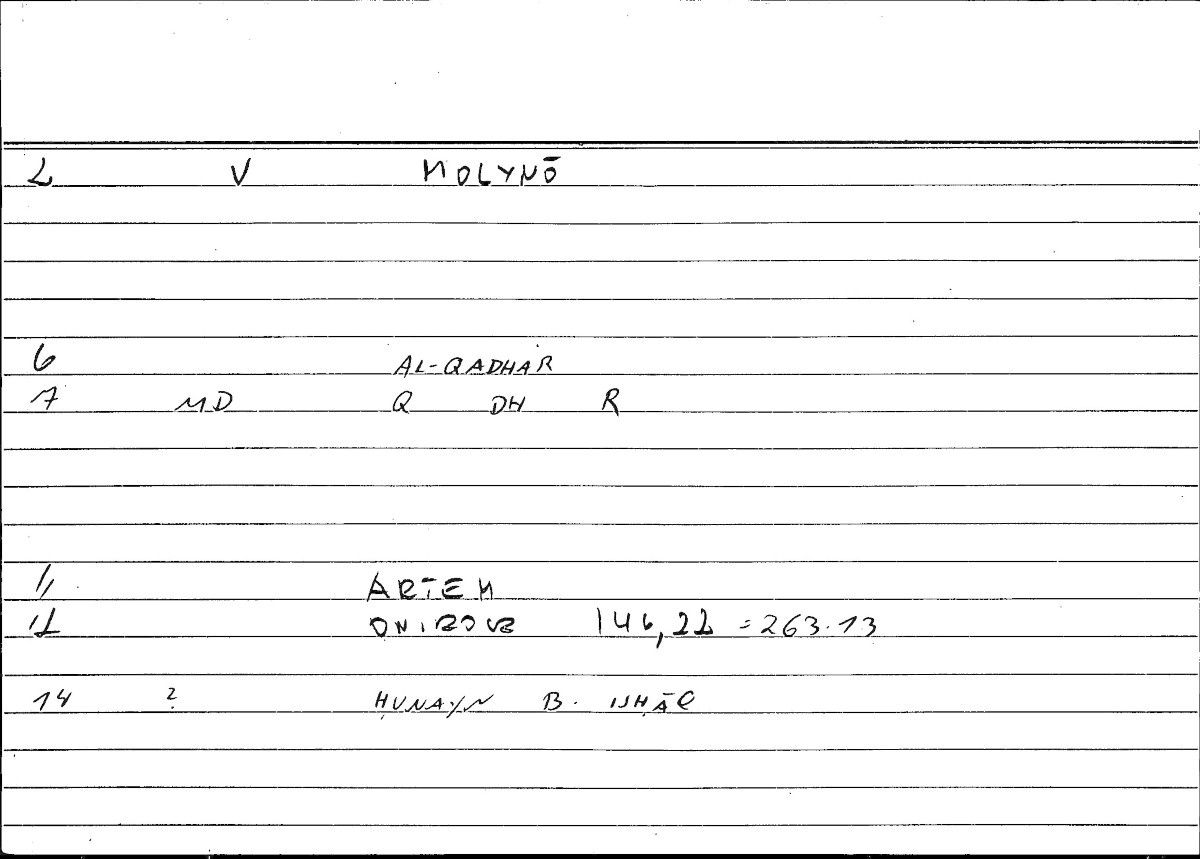 2 V MOLYNŌ
6 AL-QADHAR
7 MD Q DH R
11 ARTEM
12 ONIROCR 146,22 = 263.13
14 ? ḤUNAYN B. ISḤĀQ